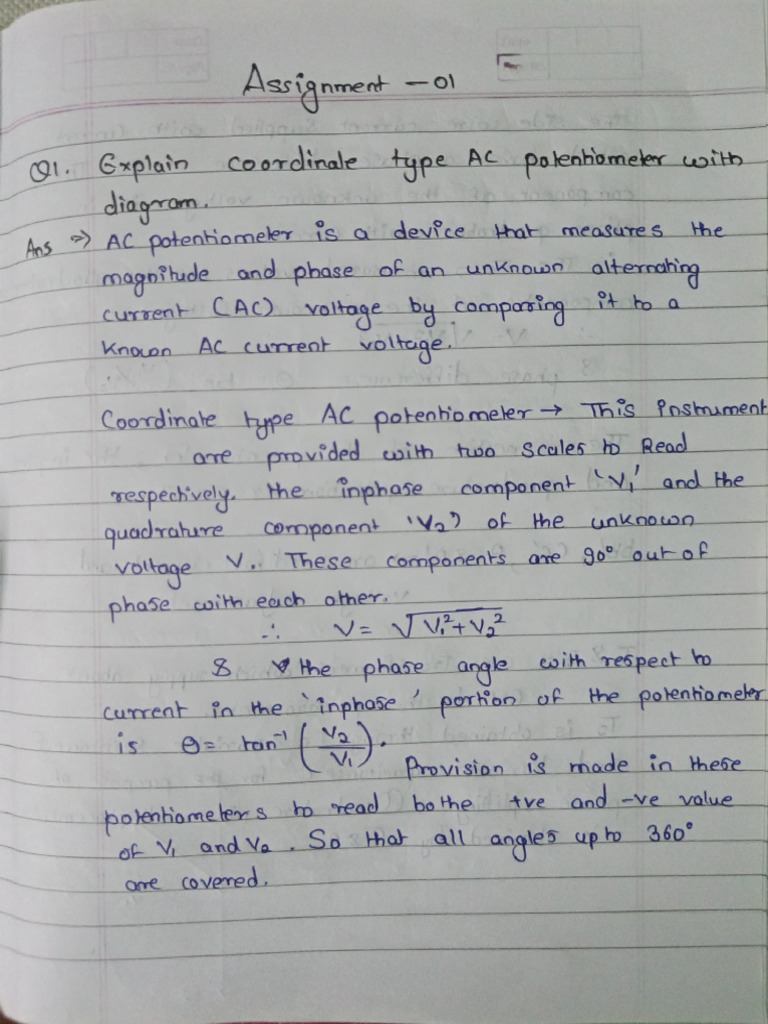 Assignment - 01
Q1. Explain coordinate type AC potentiometer with
diagram.
Ans ⇒ AC potentiometer is a device that measures the
magnitude and phase of an unknown alternating
current (AC) voltage by comparing it to a
known AC current voltage.
Coordinate type AC potentiometer → This instrument
are provided with two scales to Read
respectively. the inphase component 'V₁' and the
quadrature component 'V₂') of the unknown
voltage V. These components are 90° out of
phase with each other.
∴ V = √V₁²+V₂²
& the phase angle with respect to
current in the 'inphase' portion of the potentiometer
is θ = tan⁻¹ (V₂/V₁). Provision is made in these
potentiometers to read bothe +ve and -ve value
of V₁ and V₂. So that all angles upto 360°
are covered.